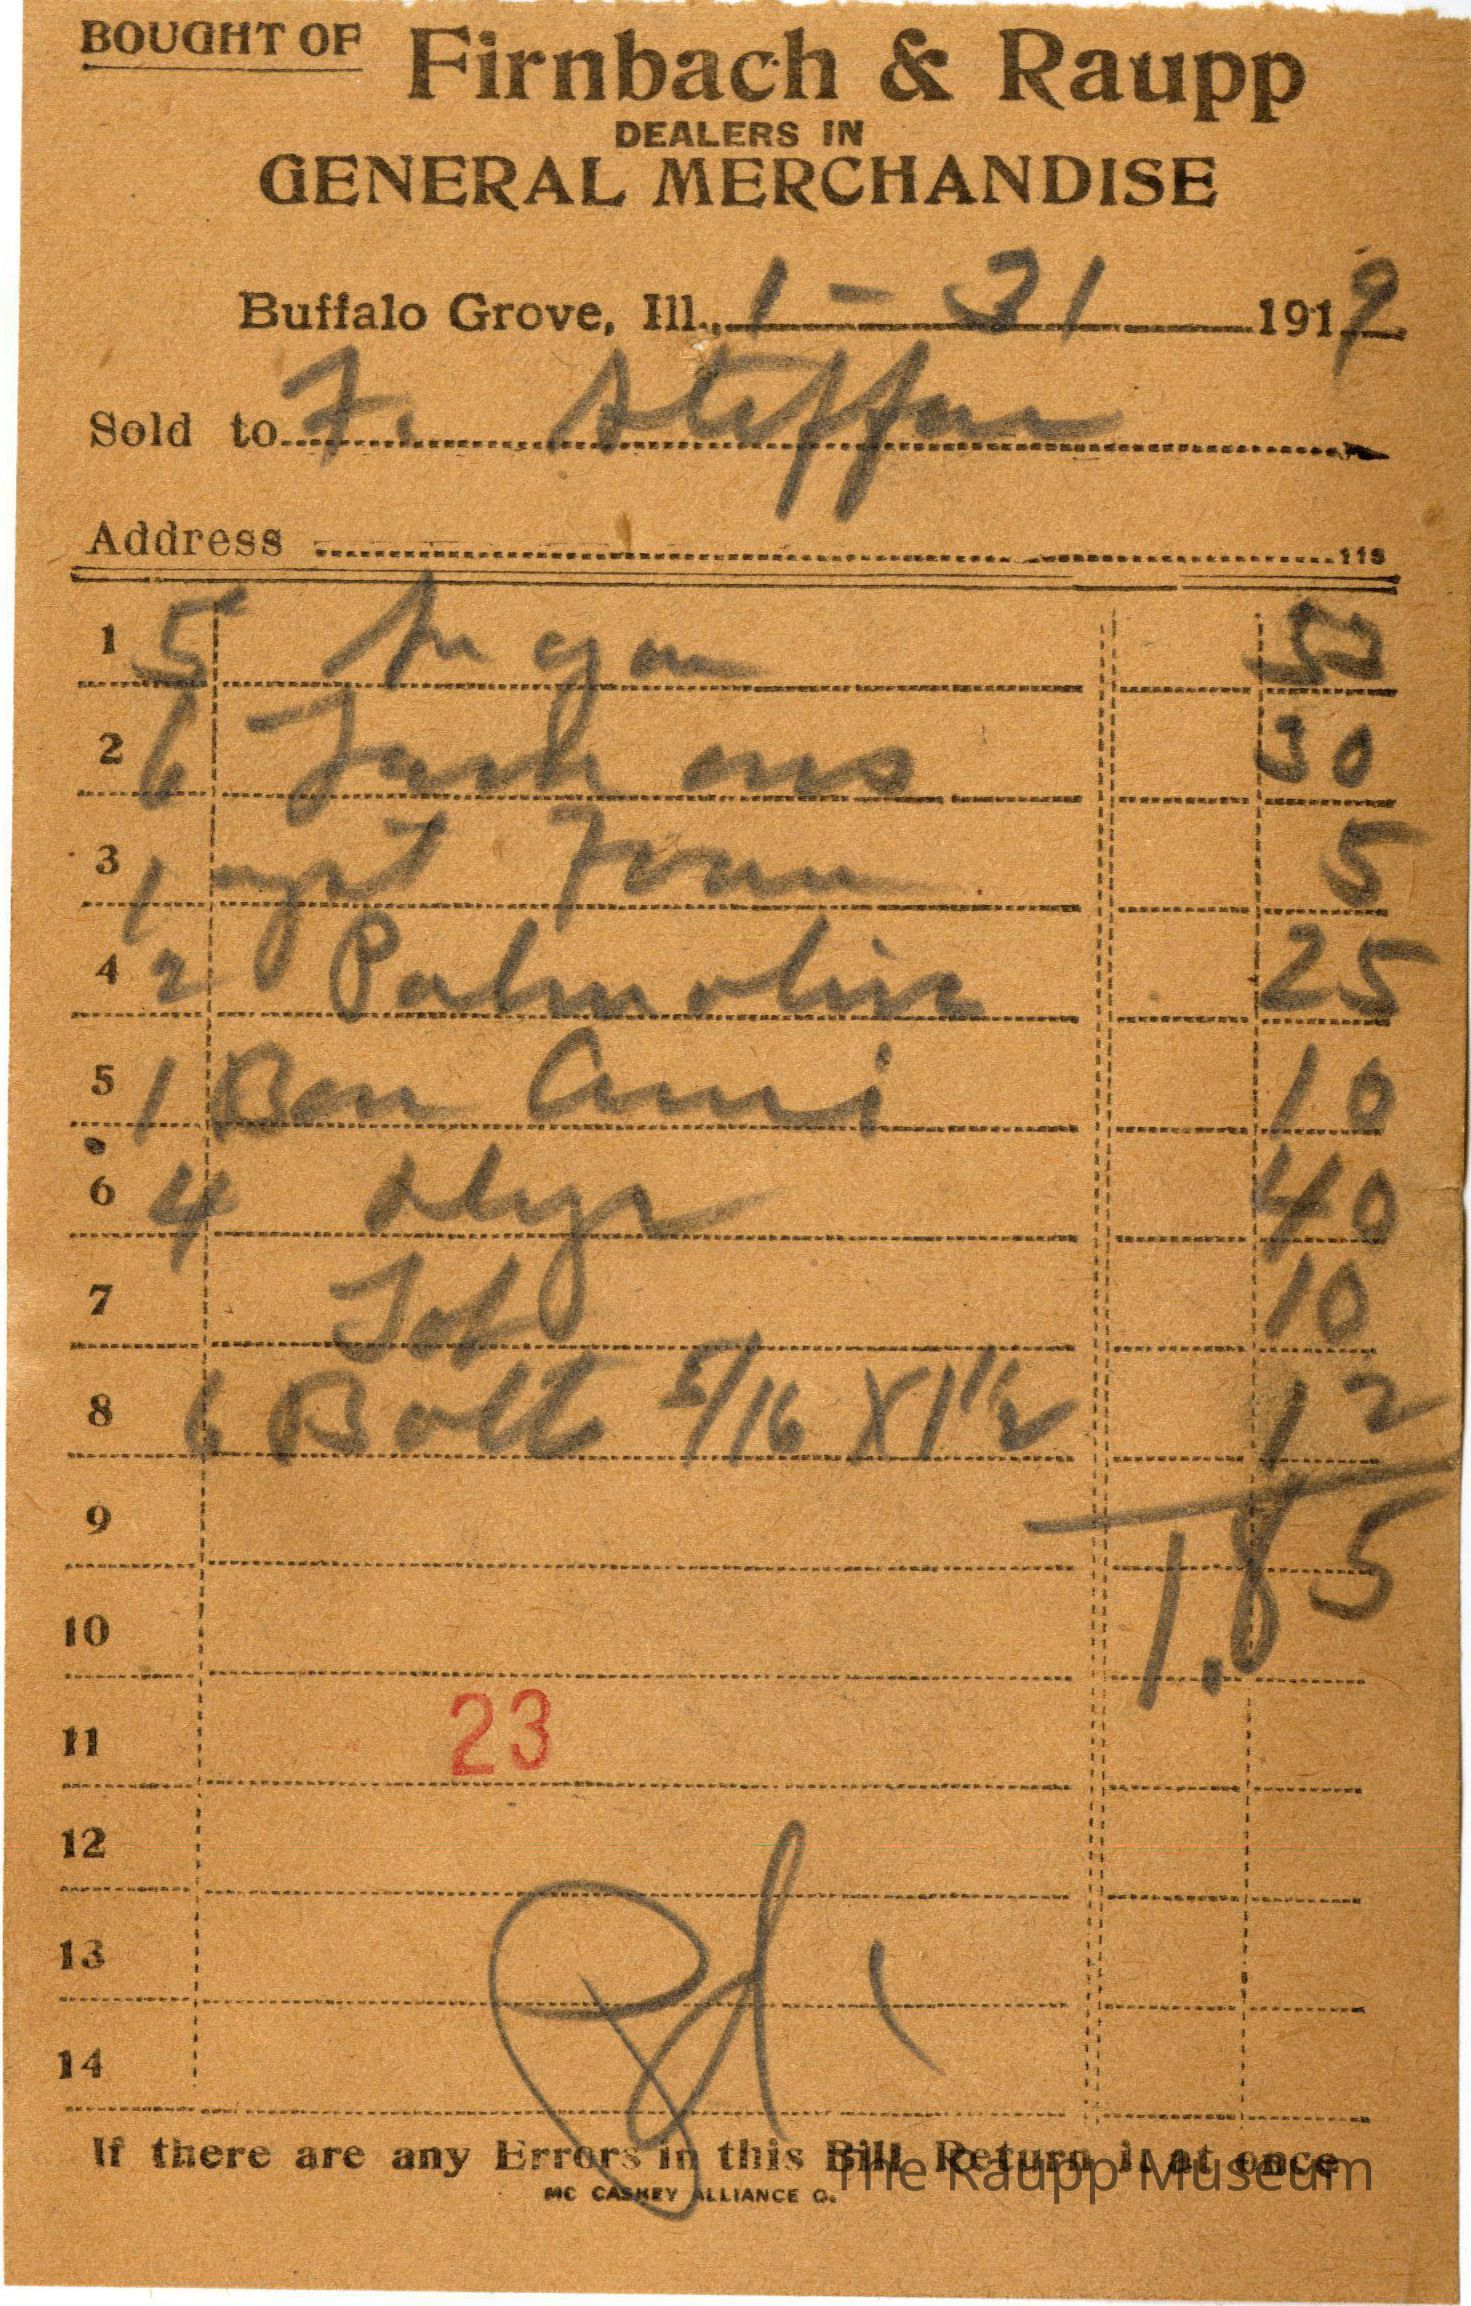 BOUGHT OF Firnbach & Raupp
DEALERS IN
GENERAL MERCHANDISE
Buffalo Grove, Ill., 1 - 31 1919
Sold to F. Steffen
Address 118
1 5 53
2 6 30
3 1 5
4 2 Palmolive 25
5 1 Bon Ami 10
6 4 40
7 Tob 10
8 6 Bolts 5/16 X 1 1/2 12
9 1.85
10
11 23
12
13 Pd
14
If there are any Errors in this Bill Return it at once
MC CASKEY ALLIANCE O.
The Raupp Museum